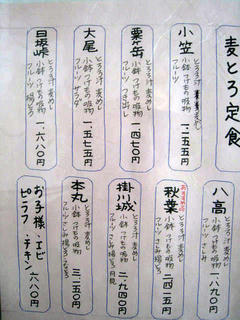 麦とろ定食
小笠
とろろ汁 麦めし
小鉢 つけもの 吸物
フルーツ
一、一五五円
粟ヶ岳
とろろ汁 麦めし
小鉢 つけもの 吸物
フルーツ
一、四七〇円
大尾
とろろ汁 麦めし
小鉢 つけもの 吸物
フルーツ サラダ
一、五七五円
日坂峠
とろろ汁 麦めし
小鉢 つけもの 吸物
フルーツ
一、六八〇円
八高
とろろ汁 麦めし
小鉢 つけもの 吸物
フルーツ さしみ
一、八九〇円
おすすめです
秋葉
とろろ汁 麦めし
小鉢 つけもの 吸物
フルーツ さしみ
二、四一五円
掛川城
とろろ汁 麦めし
小鉢 つけもの 吸物
フルーツ さしみ
二、九四〇円
本丸
とろろ汁 麦めし
小鉢 つけもの 吸物
フルーツ さしみ
三、一五〇円
お子様・エビ
ピラフ・チキン
六八〇円